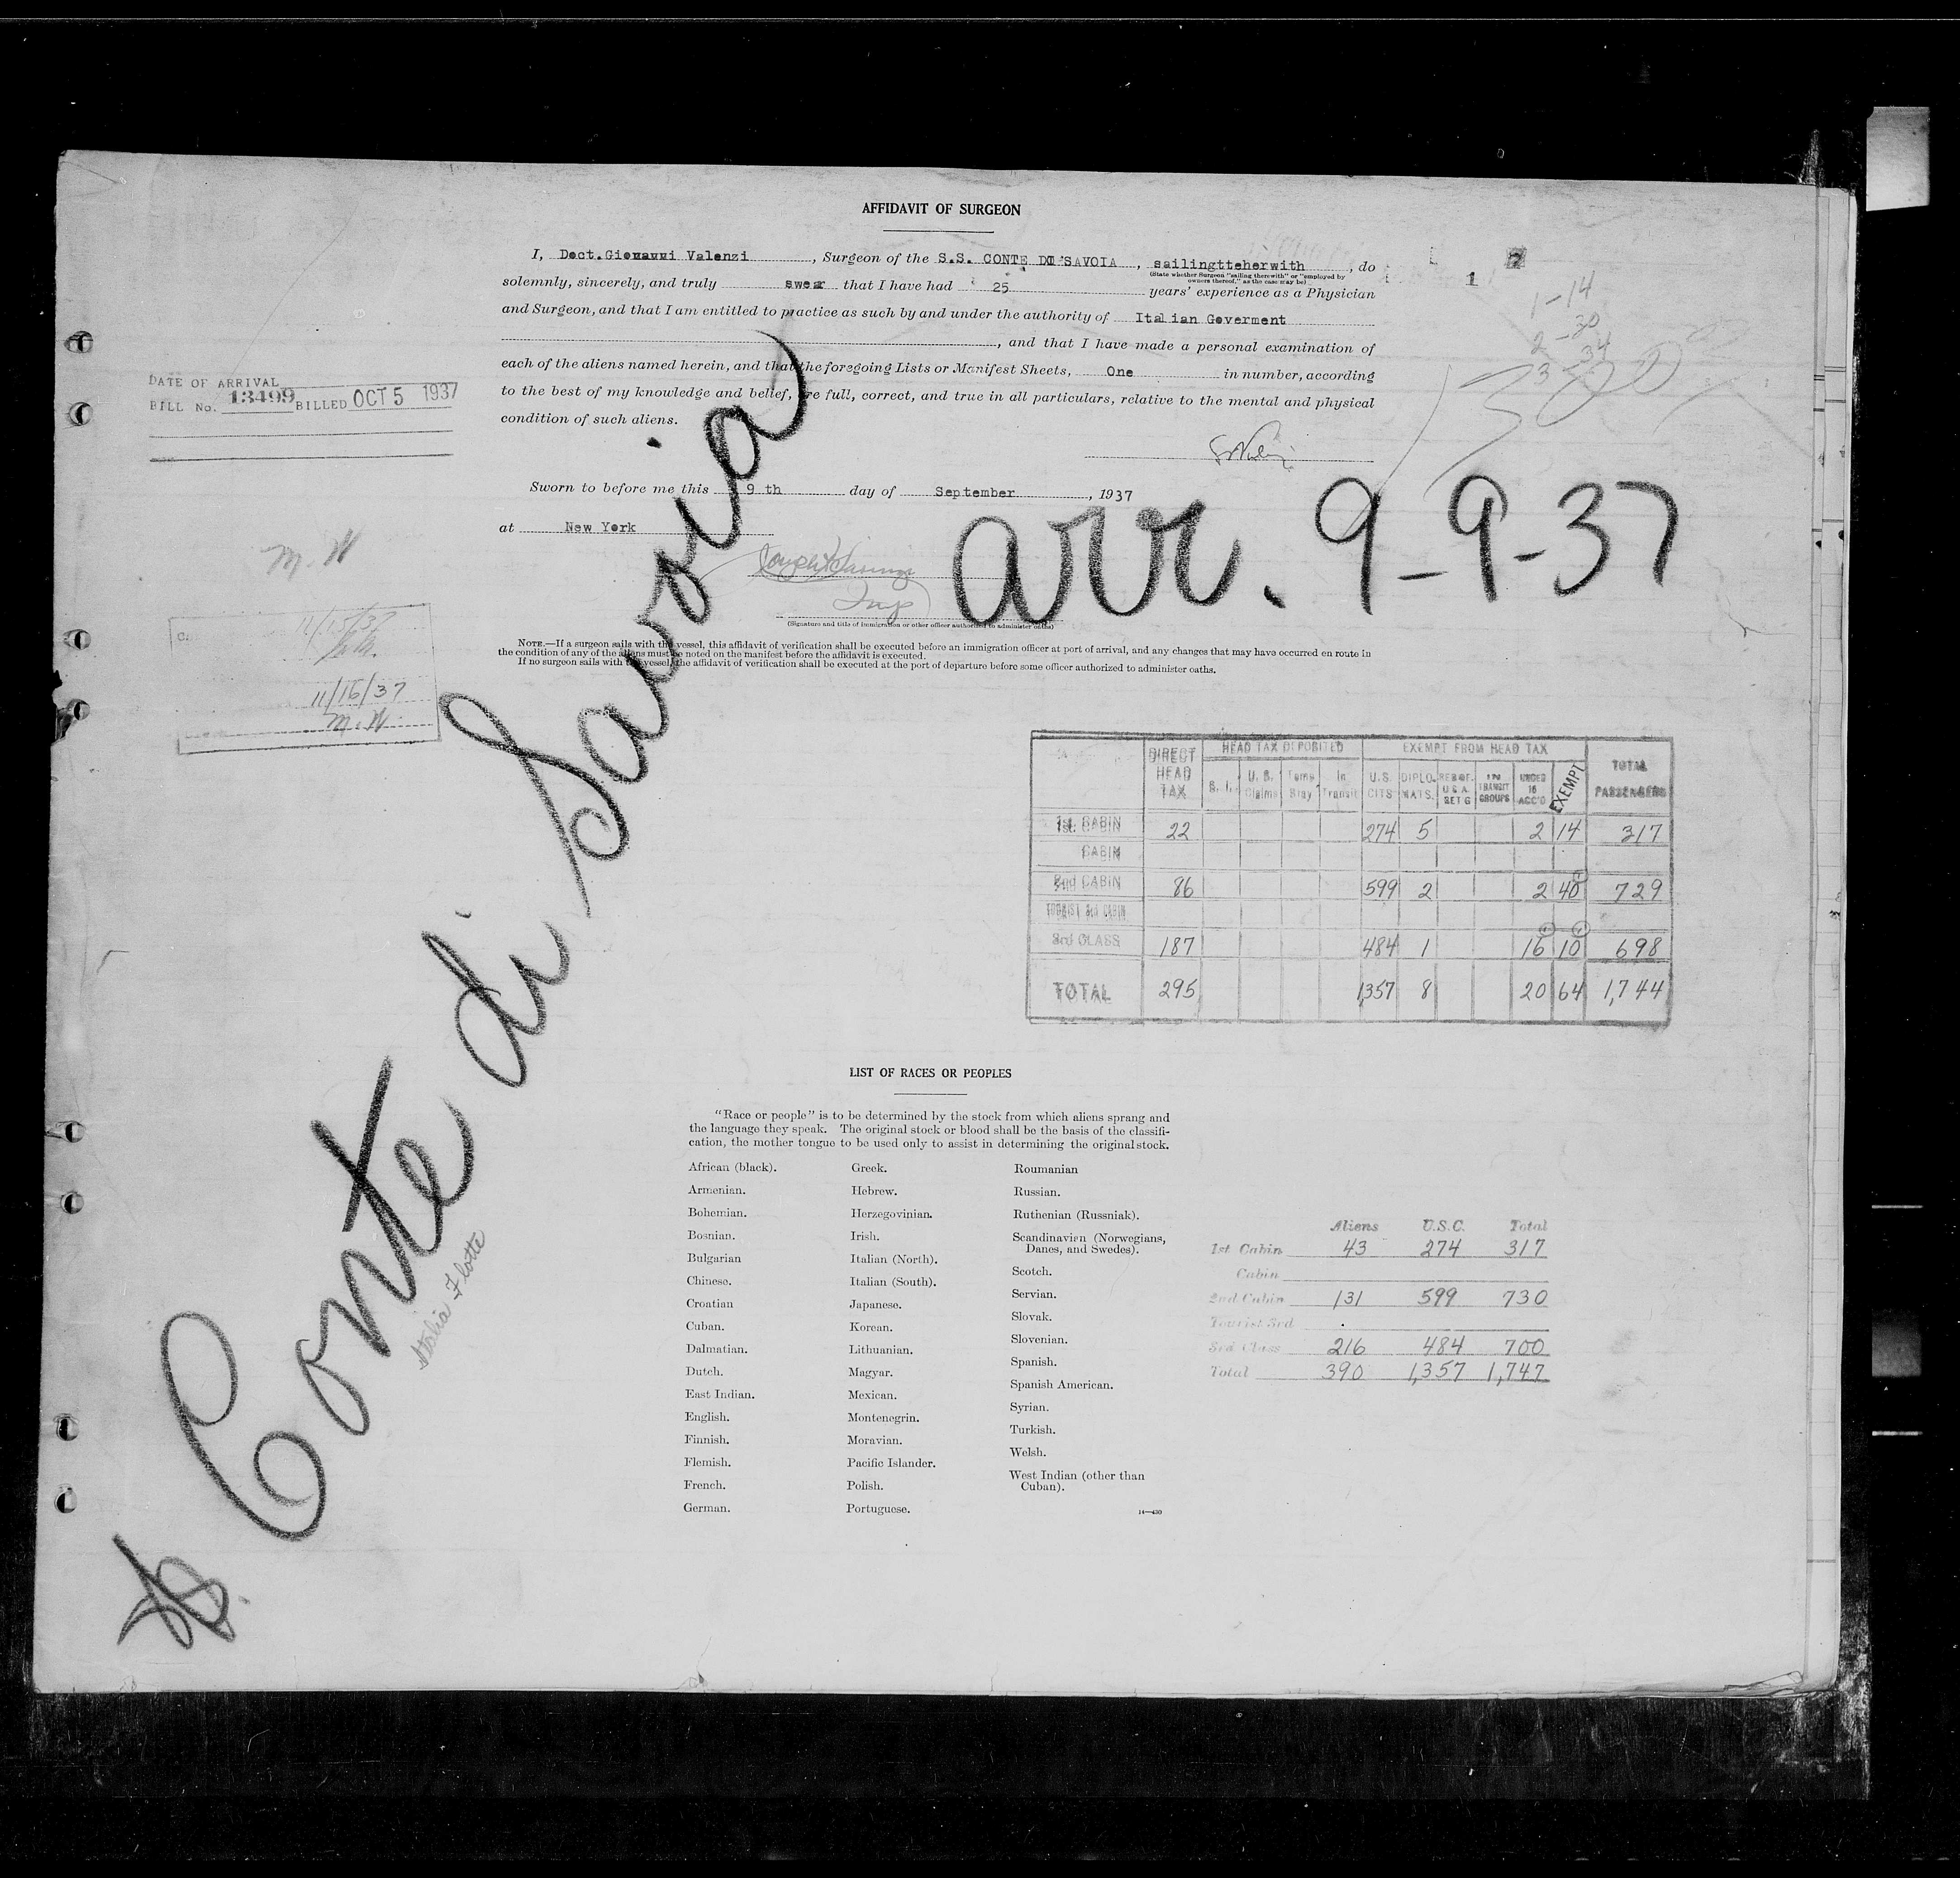 AFFIDAVIT OF SURGEON
I, Doct. Giovanni Valenzi, Surgeon of the S.S. CONTE DI SAVOIA, sailingtteherwith, do
(State whether Surgeon "sailing therewith" or "employed by owners thereof," as the case may be)
solemnly, sincerely, and truly swear that I have had 25 years' experience as a Physician
and Surgeon, and that I am entitled to practice as such by and under the authority of Italian Goverment
, and that I have made a personal examination of
each of the aliens named herein, and that the foregoing Lists or Manifest Sheets, One in number, according
to the best of my knowledge and belief, are full, correct, and true in all particulars, relative to the mental and physical
condition of such aliens.
1
1-14
2-30
3
DATE OF ARRIVAL
BILL No. 13499 BILLED OCT 5 1937
Sworn to before me this 9 th day of September, 1937
at New York
arr. 9-9-37
Insp
(Signature and title of immigration or other officer authorized to administer oaths)
M. W
11/15/37
11/16/37
M. W.
NOTE.—If a surgeon sails with the vessel, this affidavit of verification shall be executed before an immigration officer at port of arrival, and any changes that may have occurred en route in
the condition of any of the aliens must be noted on the manifest before the affidavit is executed.
If no surgeon sails with the vessel, the affidavit of verification shall be executed at the port of departure before some officer authorized to administer oaths.
Conte di Savoia
Italia Flotte
DIRECT HEAD TAX HEAD TAX DEPOSITED EXEMPT FROM HEAD TAX TOTAL PASSENGERS
S. I. U. S. Claims Temp Stay In Transit U.S. CITS DIPLO. MATS. RES OF U.S.A. RET G TRANSIT GROUPS UNDER 16 ACC'D EXEMPT
1st CABIN 22 274 5 2 14 317
CABIN
2nd CABIN 86 599 2 2 40 729
TOURIST 3rd CABIN
3rd CLASS 187 484 1 16 10 698
TOTAL 295 1357 8 20 64 1,744
LIST OF RACES OR PEOPLES
"Race or people" is to be determined by the stock from which aliens sprang and
the language they speak. The original stock or blood shall be the basis of the classifi-
cation, the mother tongue to be used only to assist in determining the original stock.
African (black).
Armenian.
Bohemian.
Bosnian.
Bulgarian
Chinese.
Croatian
Cuban.
Dalmatian.
Dutch.
East Indian.
English.
Finnish.
Flemish.
French.
German.
Greek.
Hebrew.
Herzegovinian.
Irish.
Italian (North).
Italian (South).
Japanese.
Korean.
Lithuanian.
Magyar.
Mexican.
Montenegrin.
Moravian.
Pacific Islander.
Polish.
Portuguese.
Roumanian
Russian.
Ruthenian (Russniak).
Scandinavian (Norwegians,
Danes, and Swedes).
Scotch.
Servian.
Slovak.
Slovenian.
Spanish.
Spanish American.
Syrian.
Turkish.
Welsh.
West Indian (other than
Cuban).
14—430
Aliens U.S.C. Total
1st Cabin 43 274 317
Cabin
2nd Cabin 131 599 730
Tourist 3rd
3rd Class 216 484 700
Total 390 1,357 1,747